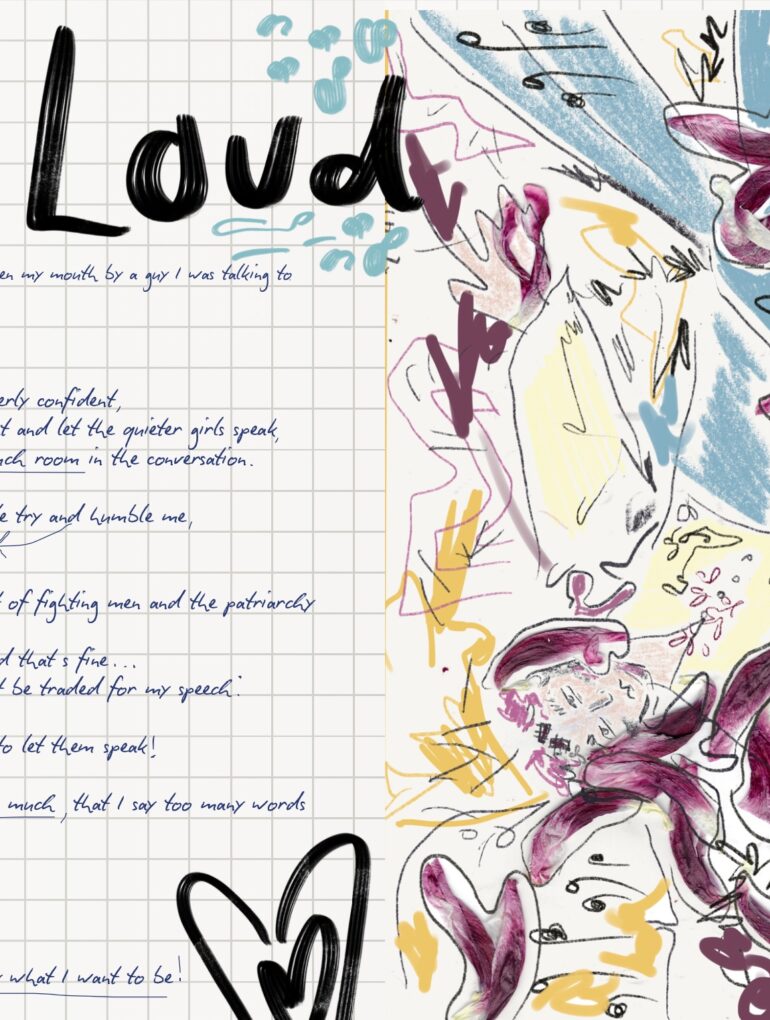 Loud
en my mouth by a guy I was talking to
erly confident,
t and let the quieter girls speak,
ch room in the conversation.
e try and humble me,
t of fighting men and the patriarchy
d that s fine...
t be traded for my speech:
to let them speak!
much, that I say too many words
what I want to be!